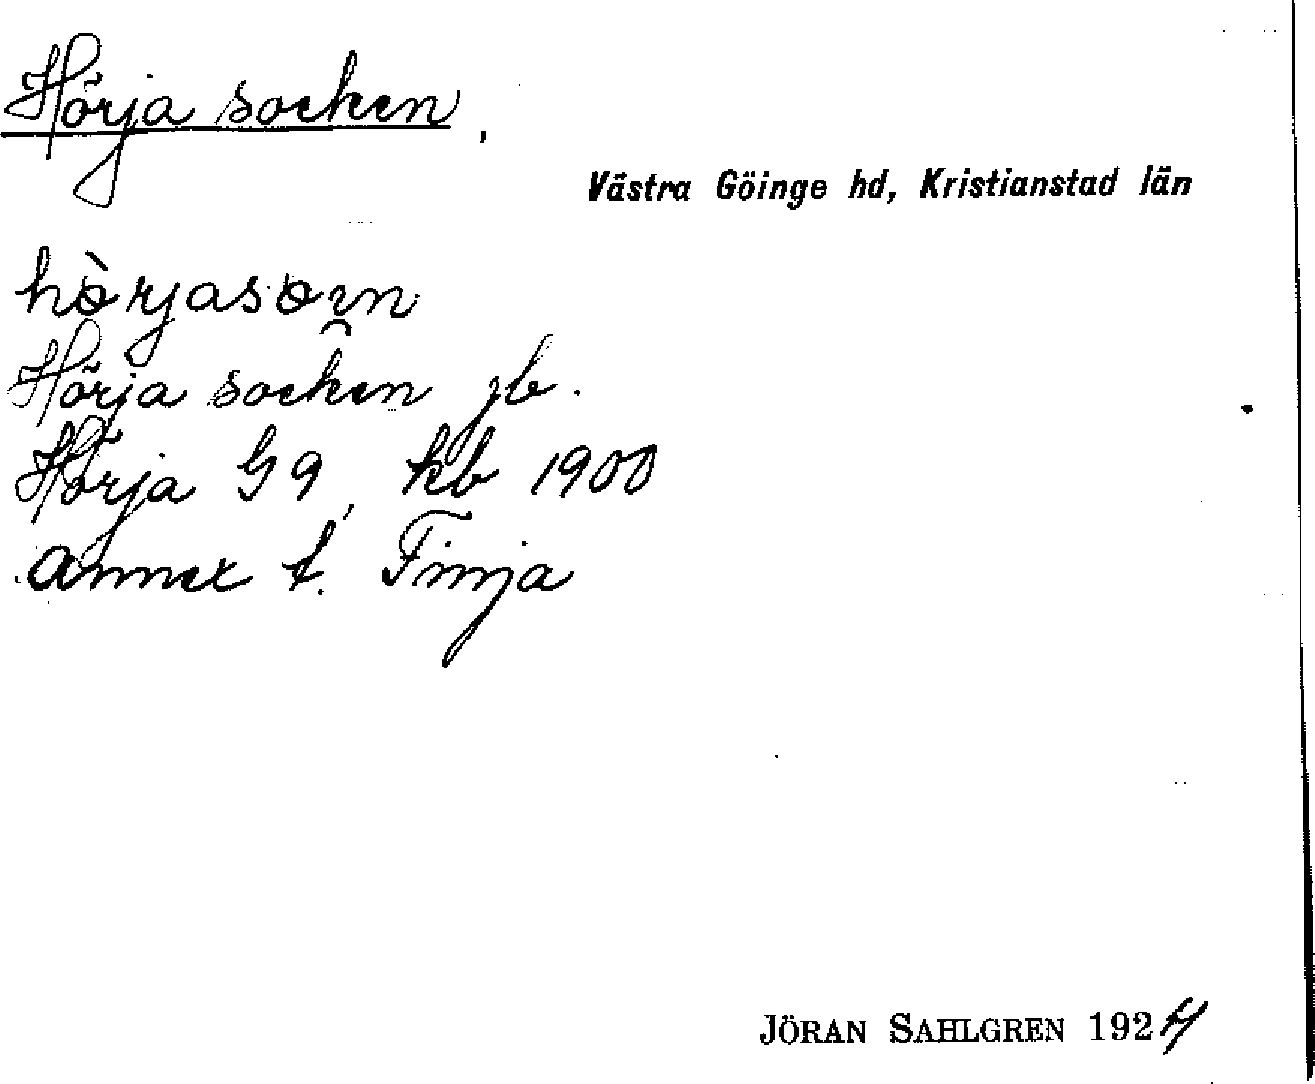 Hörja socken,
Västra Göinge hd, Kristianstad län
hòrjasoen
Hörja socken jb.
Hörja G9, kb 1900
annex t. Finja
JÖRAN SAHLGREN 1924